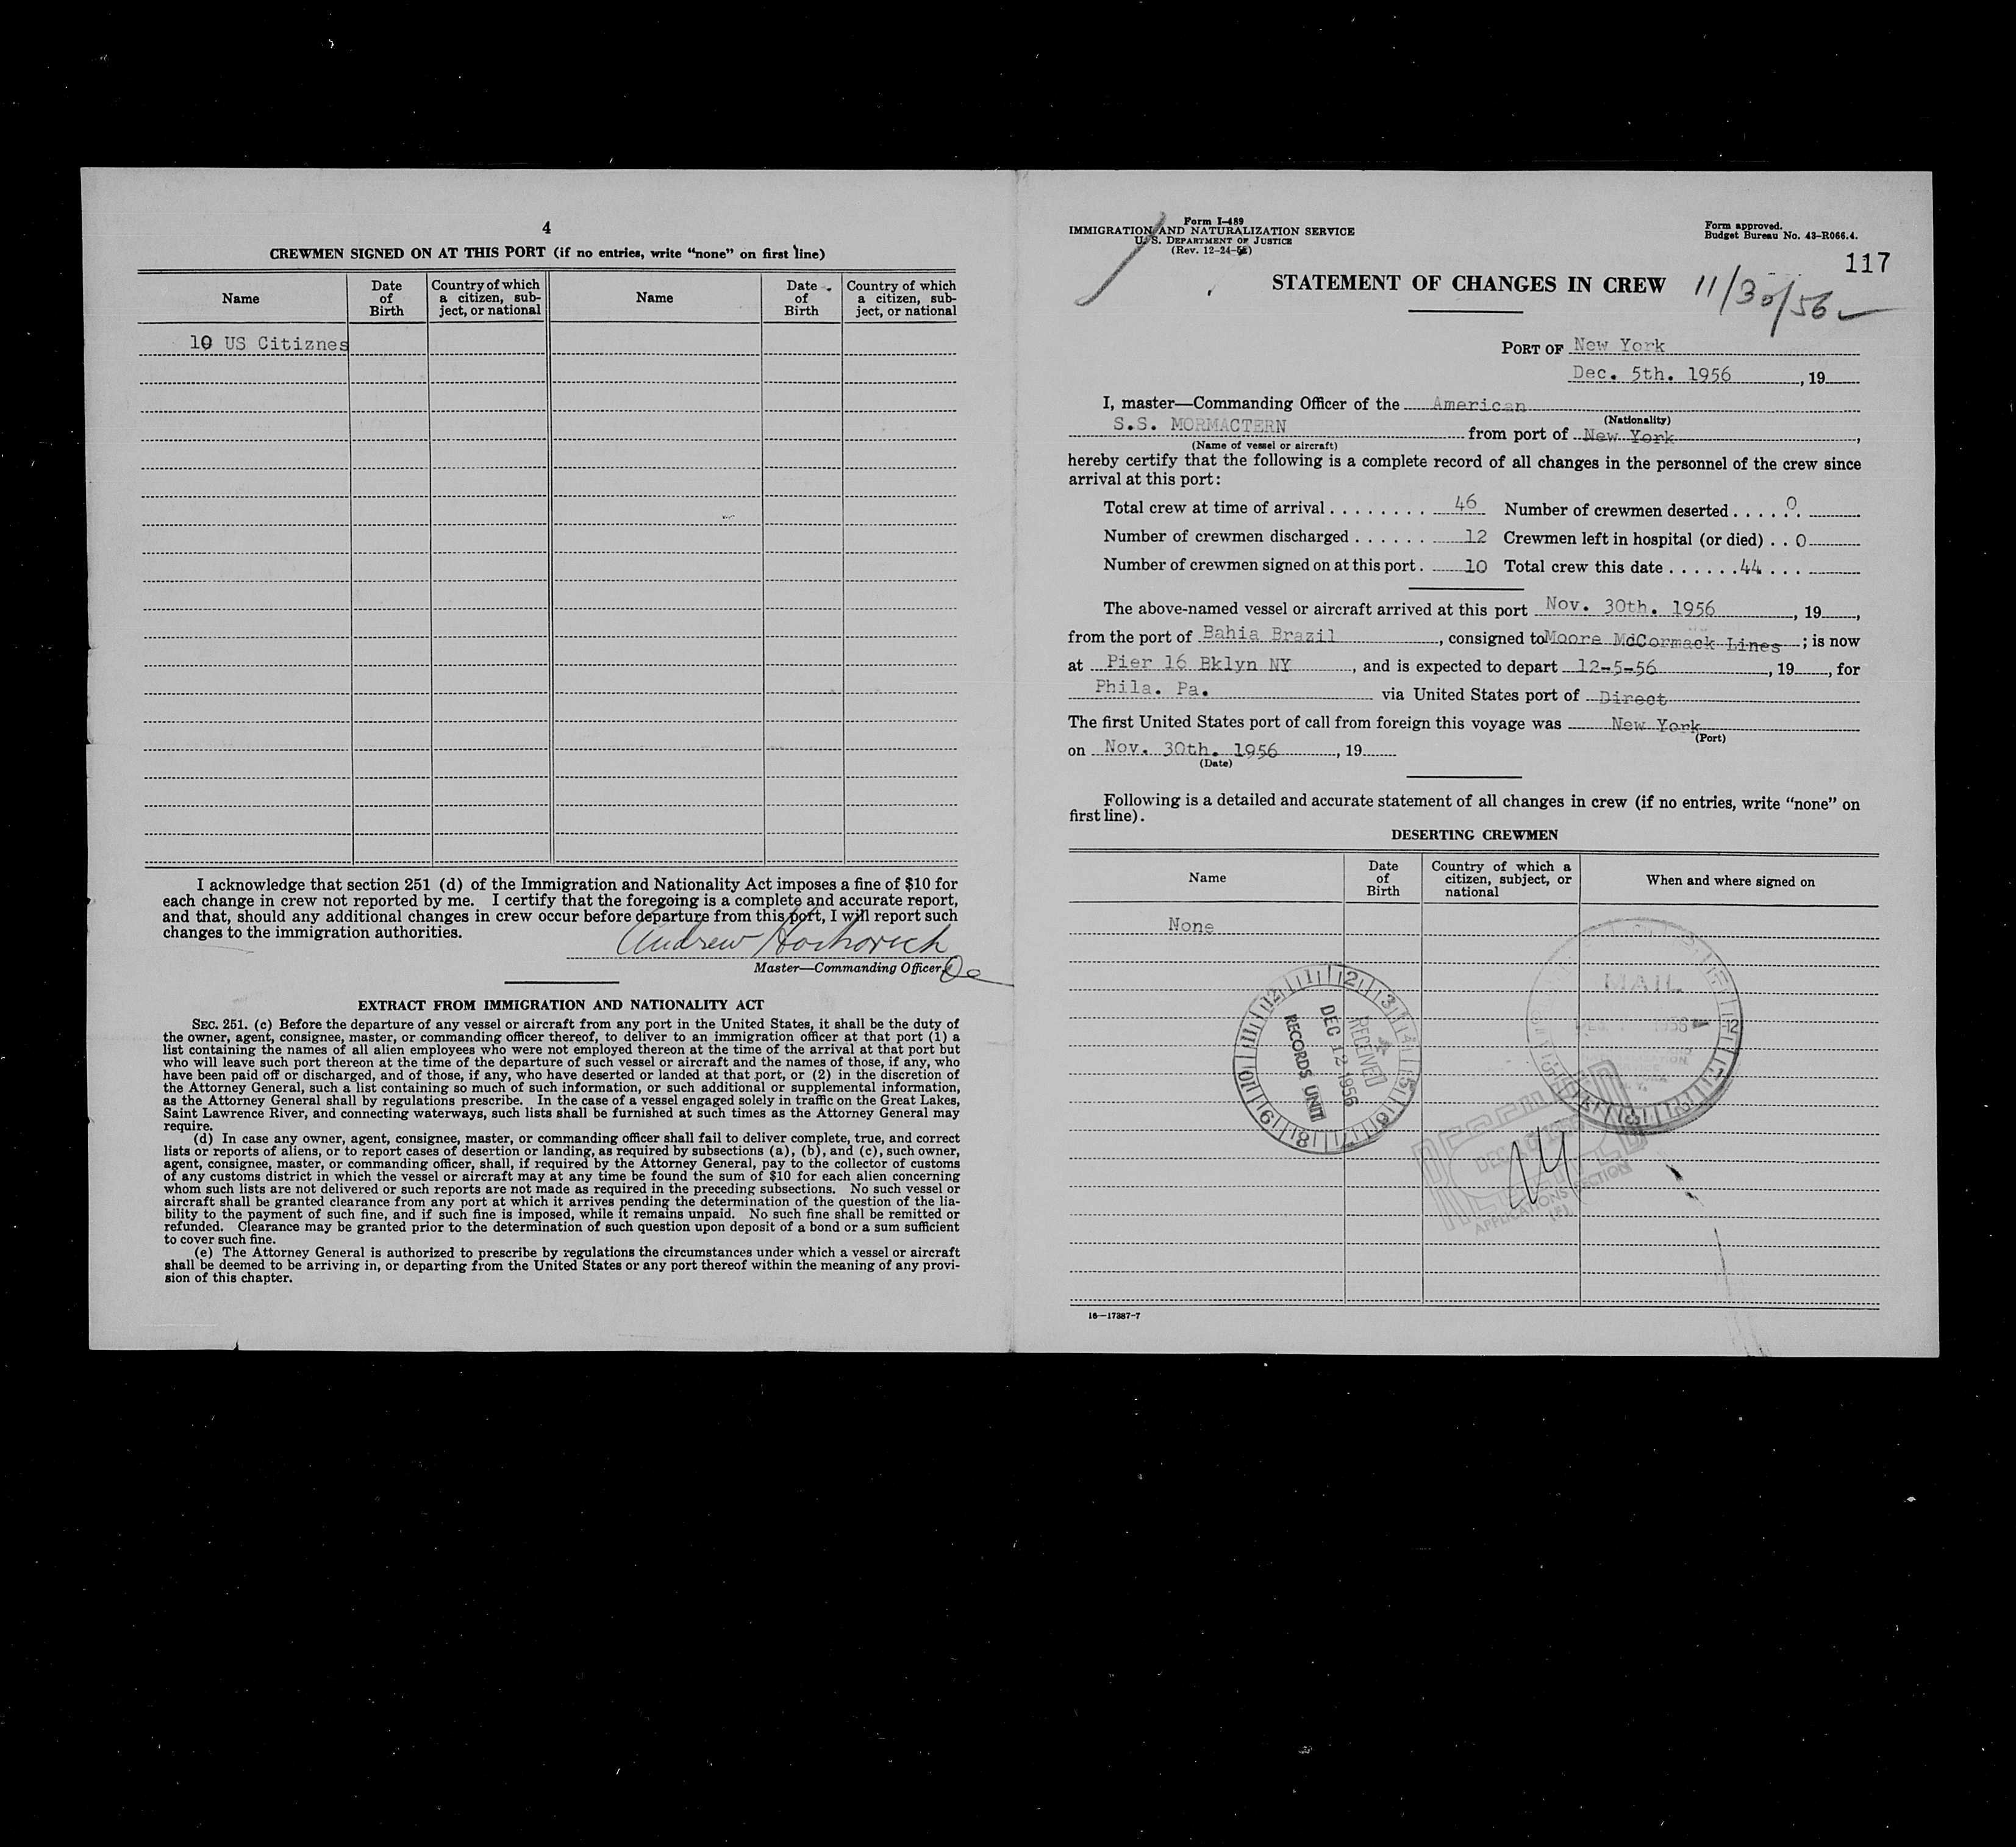 4
CREWMEN SIGNED ON AT THIS PORT (if no entries, write “none” on first line)
Name
Date of Birth
Country of which a citizen, subject, or national
Name
Date of Birth
Country of which a citizen, subject, or national
10 US Citiznes
I acknowledge that section 251 (d) of the Immigration and Nationality Act imposes a fine of $10 for
each change in crew not reported by me. I certify that the foregoing is a complete and accurate report,
and that, should any additional changes in crew occur before departure from this port, I will report such
changes to the immigration authorities.
Andrew
Master—Commanding Officer
EXTRACT FROM IMMIGRATION AND NATIONALITY ACT
SEC. 251. (c) Before the departure of any vessel or aircraft from any port in the United States, it shall be the duty of
the owner, agent, consignee, master, or commanding officer thereof, to deliver to an immigration officer at that port (1) a
list containing the names of all alien employees who were not employed thereon at the time of the arrival at that port but
who will leave such port thereon at the time of the departure of such vessel or aircraft and the names of those, if any, who
have been paid off or discharged, and of those, if any, who have deserted or landed at that port, or (2) in the discretion of
the Attorney General, such a list containing so much of such information, or such additional or supplemental information,
as the Attorney General shall by regulations prescribe. In the case of a vessel engaged solely in traffic on the Great Lakes,
Saint Lawrence River, and connecting waterways, such lists shall be furnished at such times as the Attorney General may
require.
(d) In case any owner, agent, consignee, master, or commanding officer shall fail to deliver complete, true, and correct
lists or reports of aliens, or to report cases of desertion or landing, as required by subsections (a), (b), and (c), such owner,
agent, consignee, master, or commanding officer, shall, if required by the Attorney General, pay to the collector of customs
of any customs district in which the vessel or aircraft may at any time be found the sum of $10 for each alien concerning
whom such lists are not delivered or such reports are not made as required in the preceding subsections. No such vessel or
aircraft shall be granted clearance from any port at which it arrives pending the determination of the question of the lia-
bility to the payment of such fine, and if such fine is imposed, while it remains unpaid. No such fine shall be remitted or
refunded. Clearance may be granted prior to the determination of such question upon deposit of a bond or a sum sufficient
to cover such fine.
(e) The Attorney General is authorized to prescribe by regulations the circumstances under which a vessel or aircraft
shall be deemed to be arriving in, or departing from the United States or any port thereof within the meaning of any provi-
sion of this chapter.
Form I-489
IMMIGRATION AND NATURALIZATION SERVICE
U. S. DEPARTMENT OF JUSTICE
(Rev. 12-24-52)
Form approved.
Budget Bureau No. 43-R066.4.
117
STATEMENT OF CHANGES IN CREW
11/30/56
PORT OF New York
Dec. 5th. 1956, 19
I, master—Commanding Officer of the American
(Nationality)
S.S. MORMACTERN from port of New York,
(Name of vessel or aircraft)
hereby certify that the following is a complete record of all changes in the personnel of the crew since
arrival at this port:
Total crew at time of arrival . . . . . . . . 46 Number of crewmen deserted . . . . . . 0
Number of crewmen discharged . . . . . . 12 Crewmen left in hospital (or died) . . 0
Number of crewmen signed on at this port . 10 Total crew this date . . . . . . 44 . . .
The above-named vessel or aircraft arrived at this port Nov. 30th. 1956, 19,
from the port of Bahia Brazil, consigned to Moore McCormack Lines; is now
at Pier 16 Bklyn NY, and is expected to depart 12-5-56, 19, for
Phila. Pa. via United States port of Direct
The first United States port of call from foreign this voyage was New York
(Port)
on Nov. 30th. 1956, 19
(Date)
Following is a detailed and accurate statement of all changes in crew (if no entries, write “none” on
first line).
DESERTING CREWMEN
Name
Date of Birth
Country of which a citizen, subject, or national
When and where signed on
None
MAIL
RECEIVED
DEC 12 1956
RECORDS UNIT
APPLICATIONS SECTION
16—17387-7